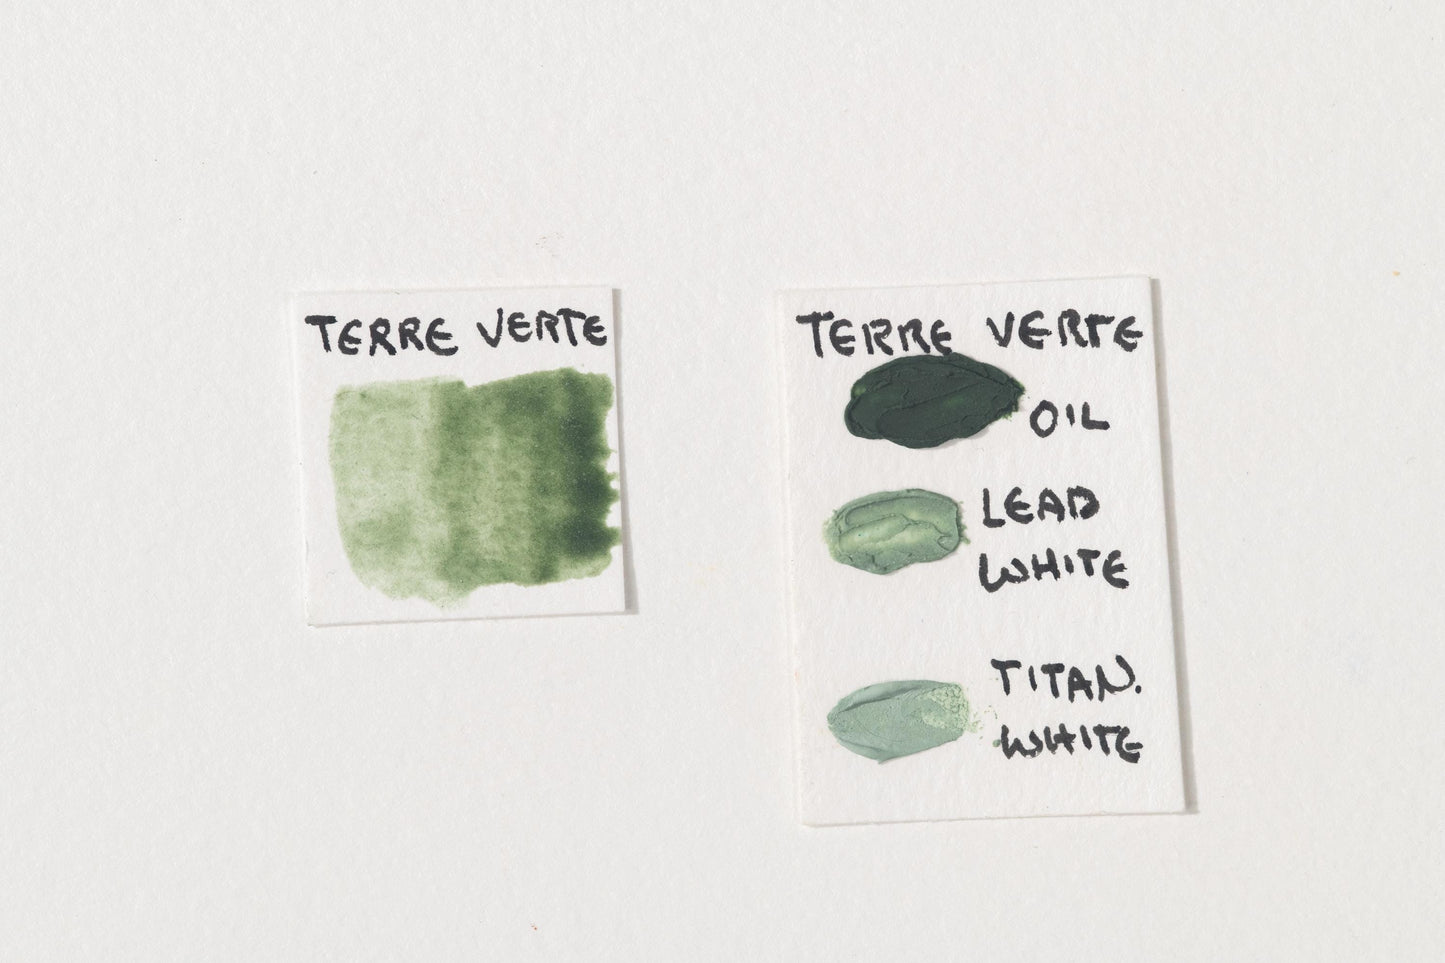 TERRE VERTE
TERRE VERTE
OIL
LEAD
WHITE
TITAN.
WHITE